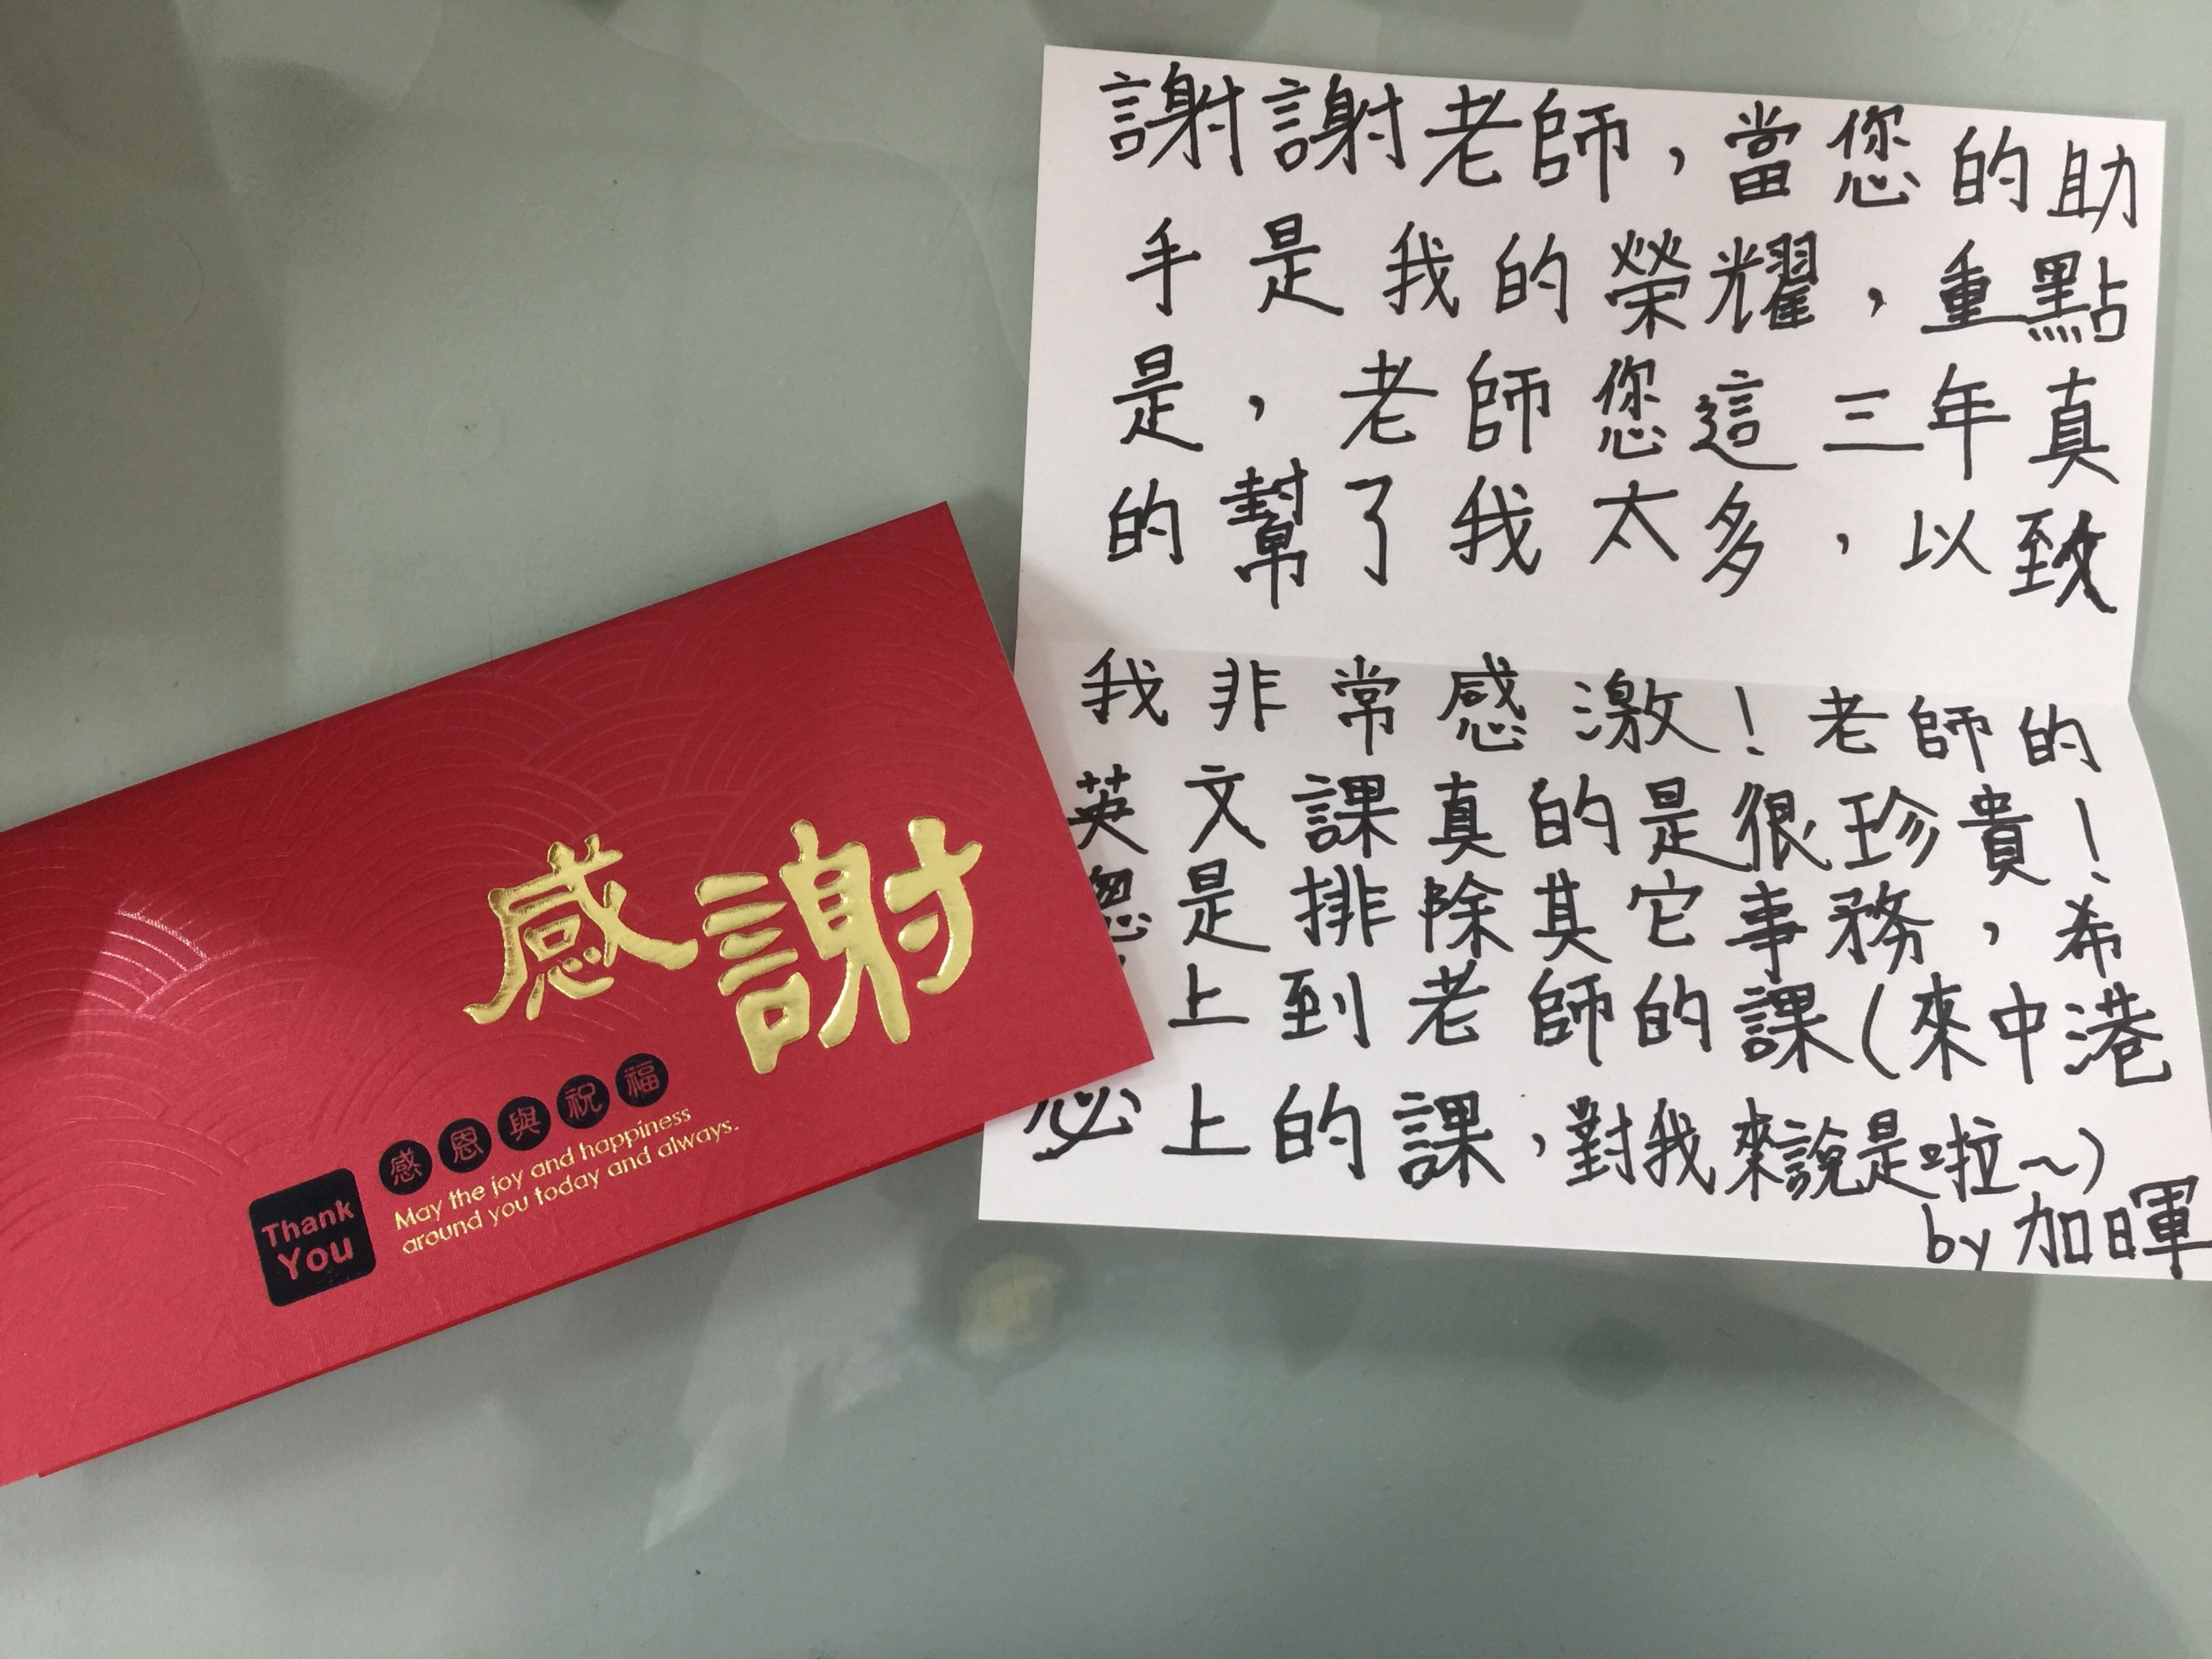 謝謝老師，當您的助
手是我的榮耀，重點
是，老師您這三年真
的幫了我太多，以致
我非常感激！老師的
英文課真的是很珍貴！
是排除其它事務，希
上到老師的課（來中港
必上的課，對我來說是啦～）
by 加暉
感謝
感恩與祝福
May the joy and happiness
around you today and always.
Thank
You